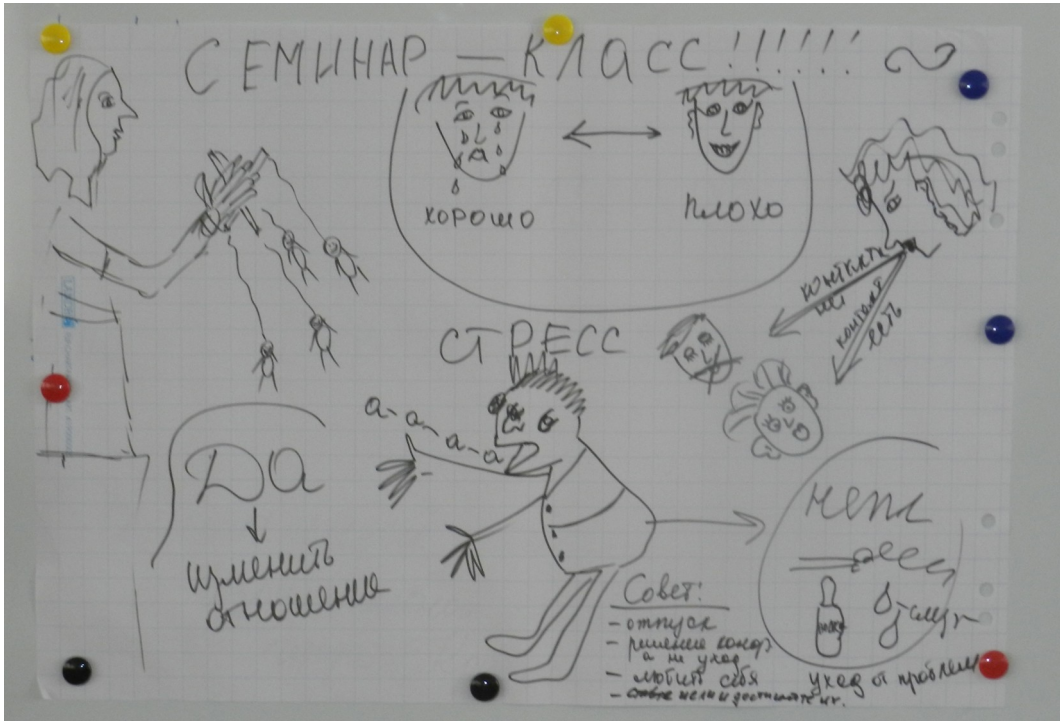 СЕМИНАР — КЛАСС!!!!!!
ХОРОШО
ПЛОХО
контакта
нет
контакт
есть
СТРЕСС
а-а-а-а
ДА
изменить
отношение
Совет:
- отпуск
- решение
а не уход
- любить себя
- цели и достигайте их.
уход от проблем